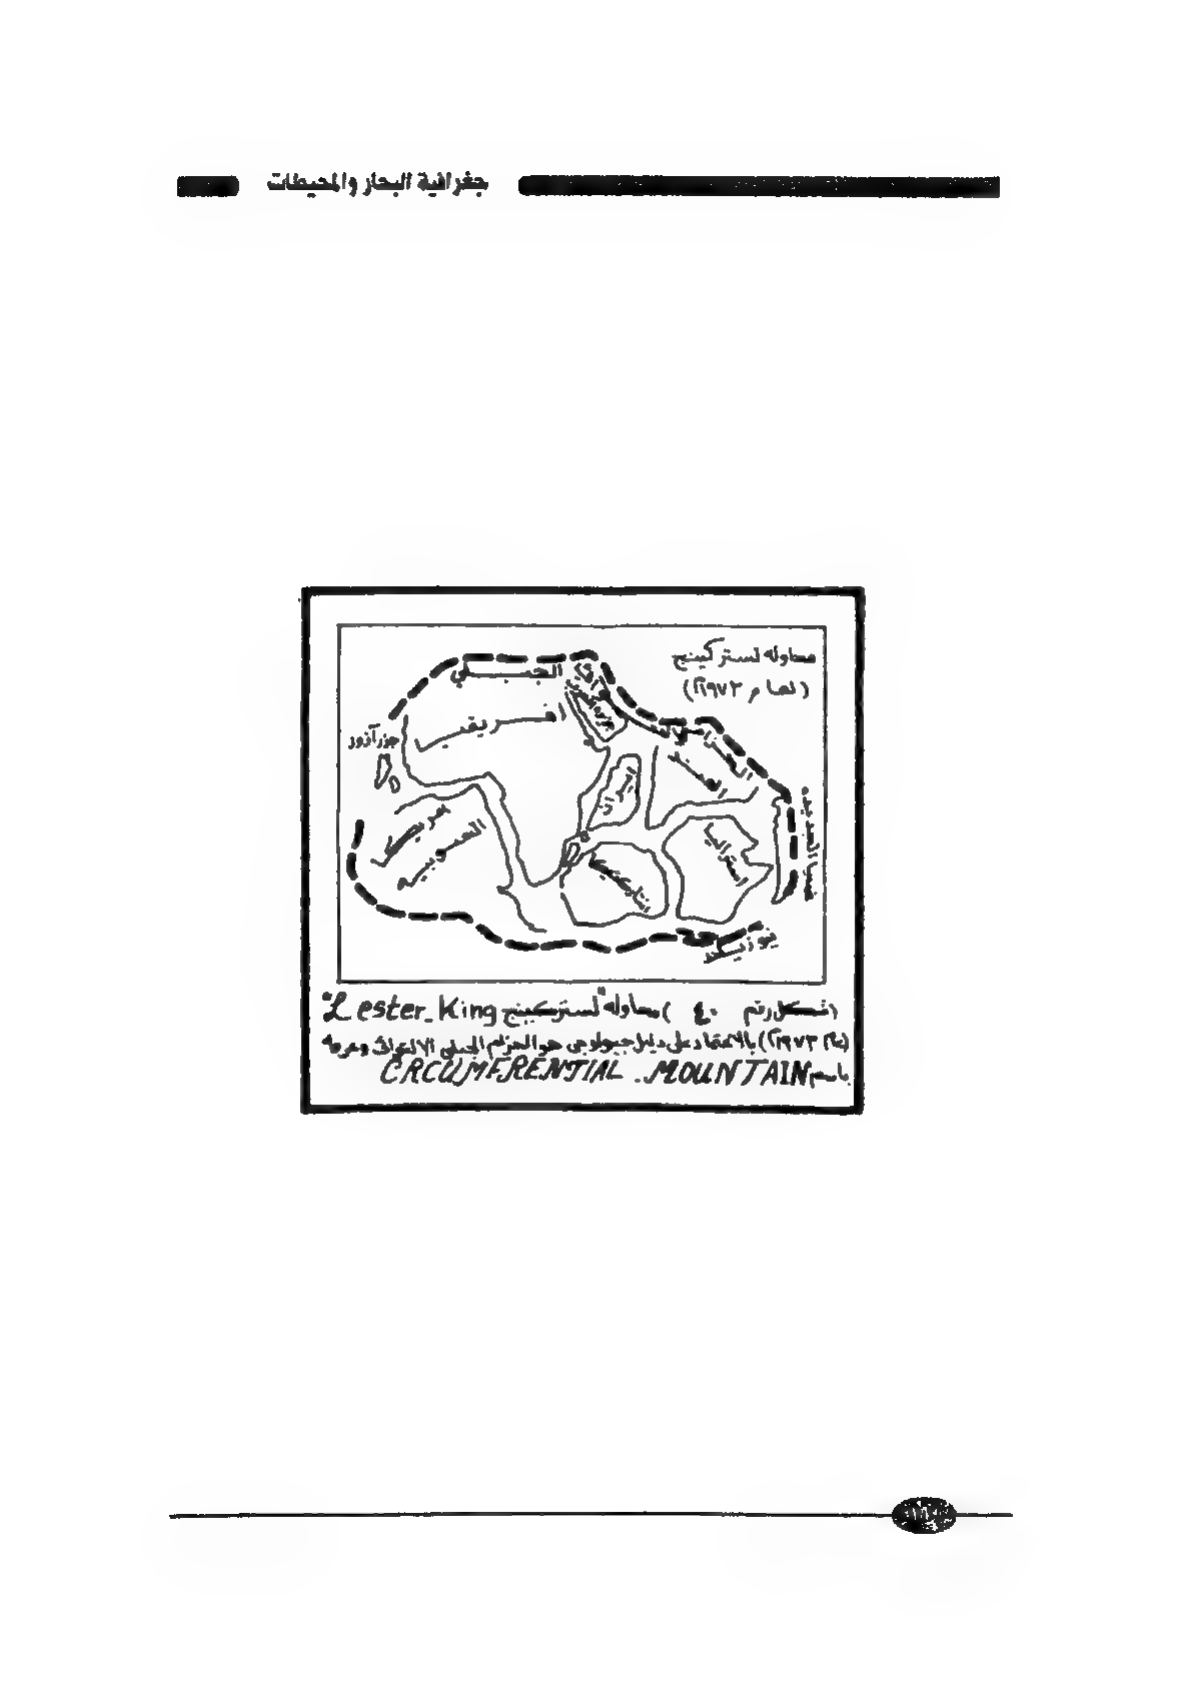 جغرافية البحار والمحيطات
محاوله لستر كينج
(لعام ١٩٧٣م)
الجبلي
افريقيا
جزر آزور
الهند
استراليا
انتاركتيكا
الجنوبيه
نيوزيلند
(شكل رقم ٤٠) محاوله "لستر كينج Lester_King"
(عام ١٩٧٣م) بالاعتماد على دليل جيولوجى هو الحزام الجبلى الالتوائى وعرفه
باسم CRCUMFERENTIAL . MOUNTAIN